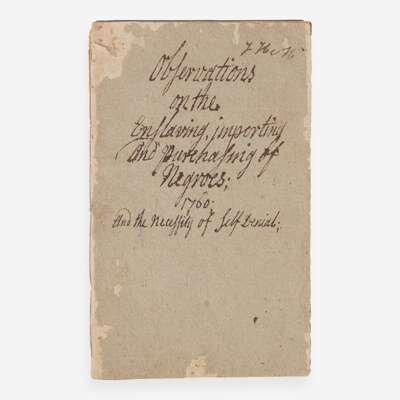 Observations
on the
Enslaving, importing
And Purchasing of
Negroes;
1760.
And the Necessity of Self Denial;